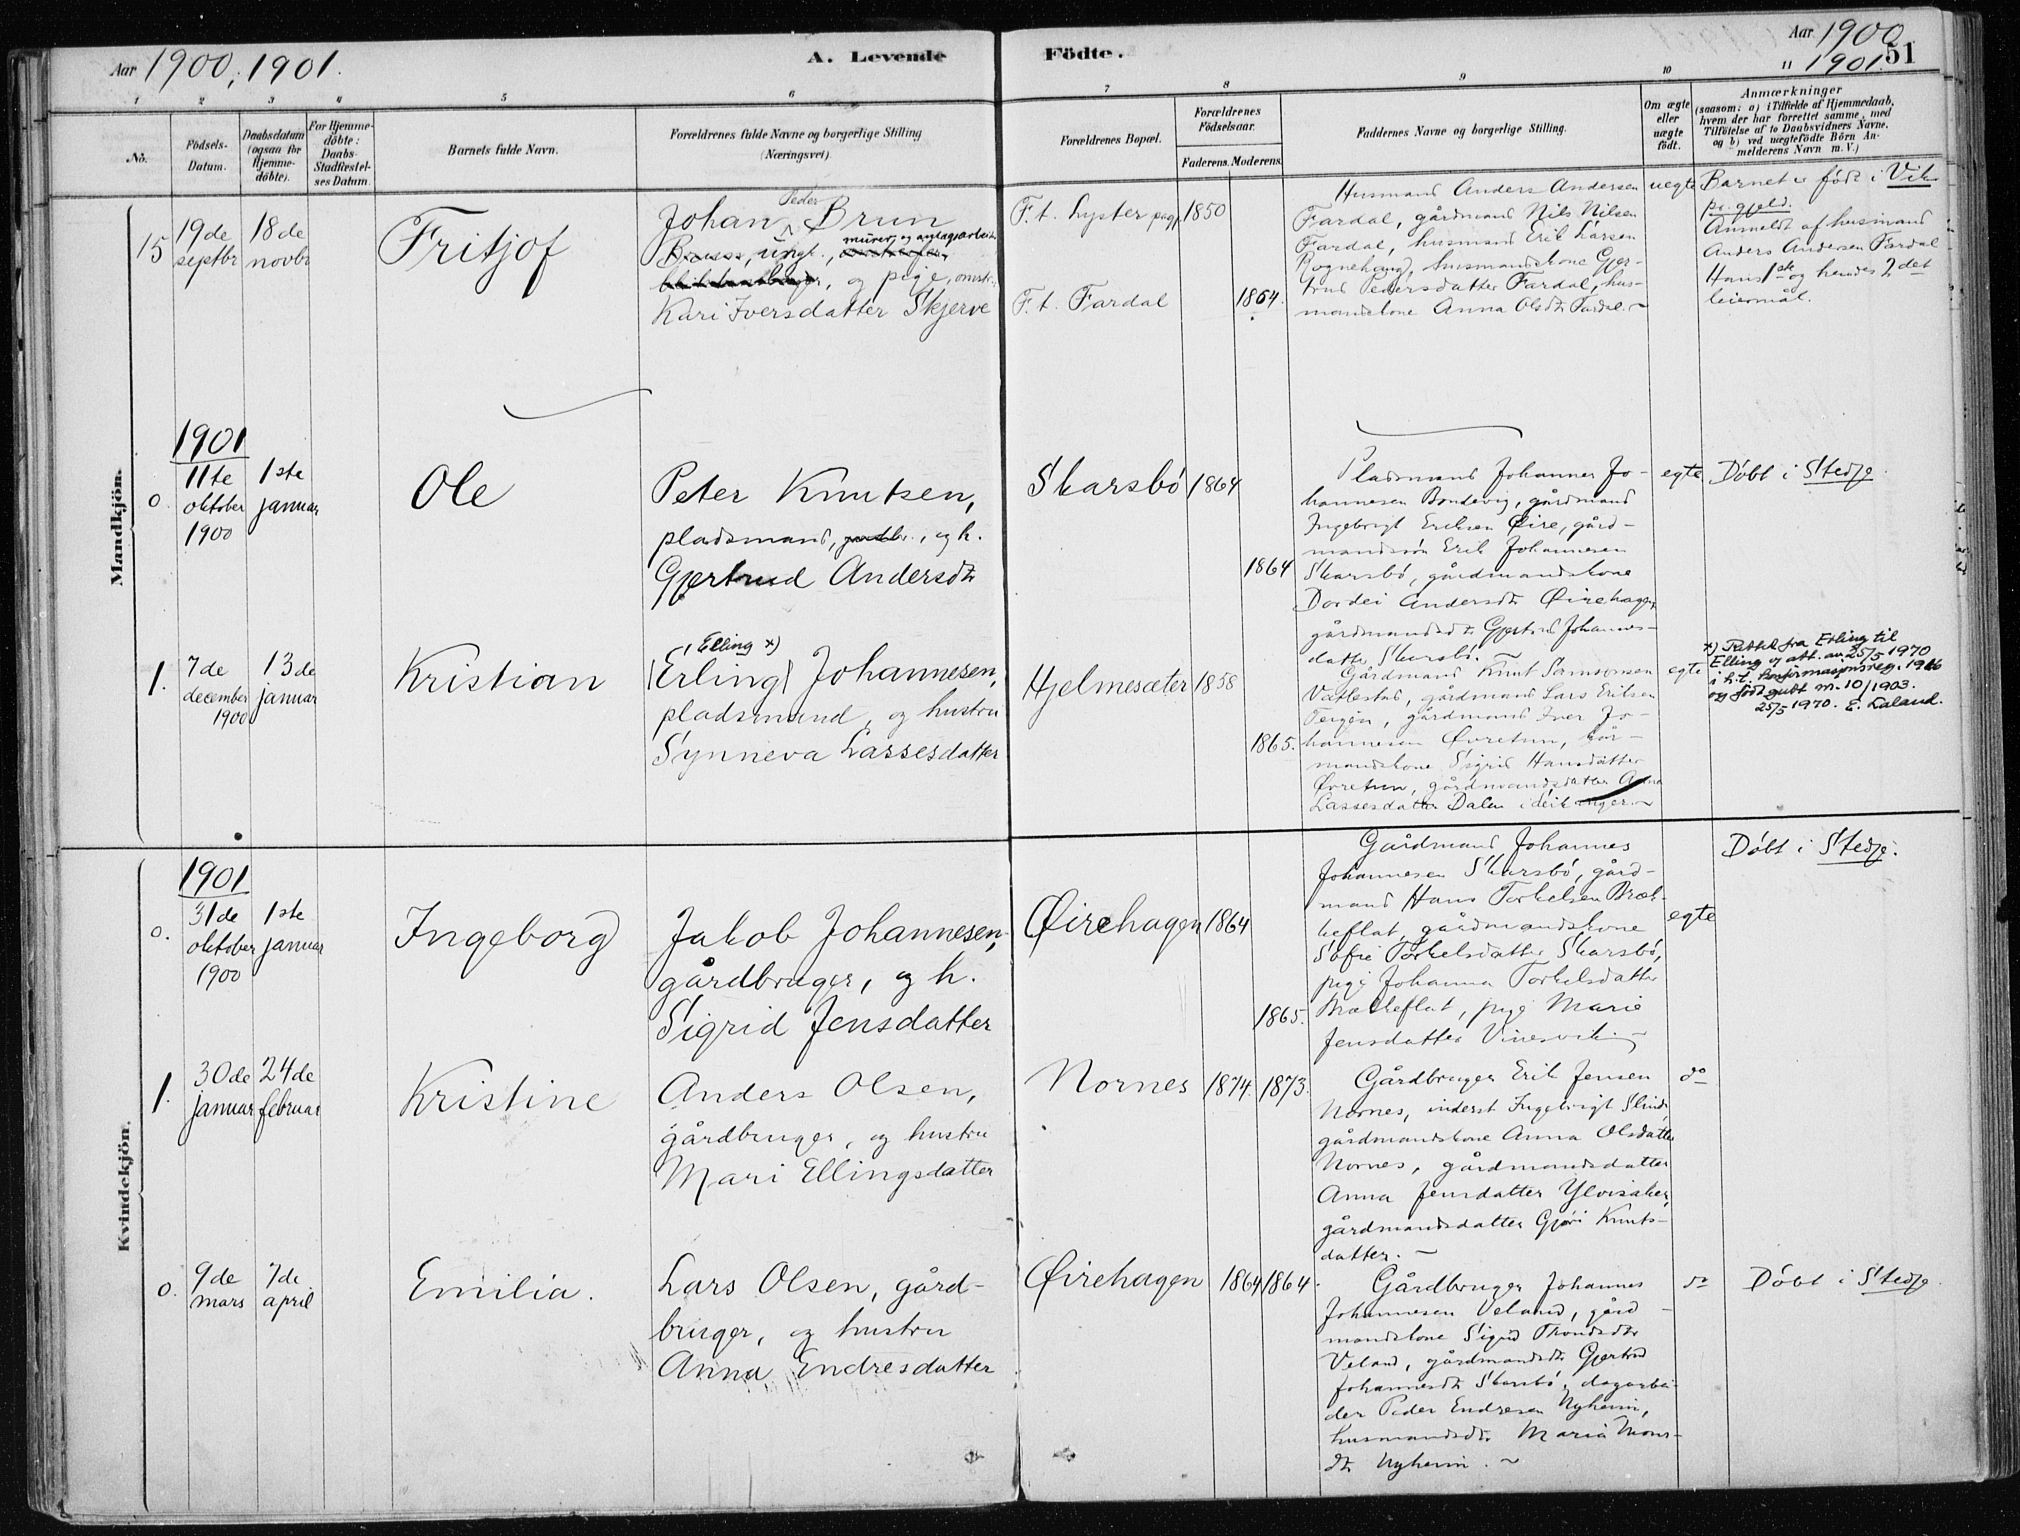 Aar 1900, 1901.
A. Levende Födte.
Aar 1900
1901.
51
1 2 3 4 5 6 7 8 9 10 11
No.
Födsels-
Datum.
Daabsdatum
(ogsaa for
Hjemme-
döbte).
For Hjemme-
döbte:
Daabs-
Stadfæstel-
ses Datum.
Barnets fulde Navn.
Forældrenes fulde Navne og borgerlige Stilling
(Næringsvei).
Forældrenes Bopæl.
Forældrenes
Födselsaar.
Faderens. Moderens.
Faddernes Navne og borgerlige Stilling.
Om ægte
eller
uægte
födt.
Anmærkninger
(saasom: a) i Tilfælde af Hjemmedaab,
hvem der har forrettet samme, med
Tilföielse af to Daabsvidners Navne,
og b) ved uægtefödte Börn An-
melderens Navn m. V.)
Mandkjön.
15
19de
septbr
18de
novbr
Fritjof
Peder
Johan Brun
ungk., murer og anlægsarbeider
og pige, omstr.
Kari Iversdatter Skjerve
F. t. Lyster pgj
F. t. Fardal
1850
1864.
Husmand Anders Andersen
Fardal, gårdmand Nils Nilsen
Fardal, husmand Erik Larsen
Rognehaug, husmandskone Gjer-
trud Pedersdatter Fardal, hus-
mandskone Anna Olsdtr Fardal. ~
uegte
Barnet er født i Vik
pr.gjeld.
Anmeldt af husmand
Anders Andersen Fardal
Hans 1ste og hendes 2det
leiermål.
1901
0.
11te
oktober
1900
1ste
januar
Ole
Peter Knutsen,
pladsmand, gardbr., og h.
Gjertrud Andersdtr
Skarsbø
1864
1864
Pladsmand Johannes Jo-
hannesen Bondevig, gårdmand
Ingebrigt Eriksen Øire, gård-
mandssøn Erik Johannesen
Skarsbø, gårdmandskone
Dordei Andersdtr Øirehagen,
gårdmandsdtr Gjertrud Johannes-
datter Skarsbø. ~
egte
Døbt i Stedje.
1.
7de
december
1900
13de
januar
Kristian
Elling x)
(Erling) Johannesen,
pladsmand, og hustru
Synneva Lassesdatter
Hjelmesæter
1858
1865.
Gårdmand Knut Samsonsen
Vallestad, gårdmand Lars Eriksen
gårdmand Iver Jo-
hannesen Øvretun,
mandskone Sigrid Hansdatter
Øvretun, gårdmandsdatter Anna
Lassesdatter Dalen i Leikanger. ~
egte
x) Rettet fra Erling til
Elling og att. av 25/5 1970
i h.t. konfirmasjonsreg. 1916
og født gudt nr. 10/1903.
25/5 1970. E. Laland.
Kvindekjön.
1901
0.
31de
oktober
1900
1ste
januar
Ingeborg
Jakob Johannesen,
gårdbruger, og h.
Sigrid Jensdatter
Øirehagen
1864
1865.
Gårdmand Johannes
Johannesen Skarsbø, gård-
mand Hans Torkelsen Bræk-
keflat, gårdmandskone
Sofie Torkelsdatter Skarsbø,
pige Johanna Torkelsdatter
Brækkeflat, pige Marie
Jensdatter Vinesvik ~
egte
Døbt i Stedje.
1.
30de
januar
24de
februar
Kristine
Anders Olsen,
gårdbruger, og hustru
Mari Ellingsdatter
Nornes
1874.
1873.
Gårdbruger Erik Jensen
Nornes, inderst Ingebrigt Slinde
gårdmandskone Anna Olsdatter
Nornes, gårdmandsdatter
Anna Jensdatter Ylvisaker,
gårdmandsdatter Gjøri Knuts-
datter. ~
do
0.
9de
mars
7de
april
Emilia.
Lars Olsen, gård-
bruger, og hustru
Anna Endresdatter
Øirehagen
1864
1864.
Gårdbruger Johannes
Johannesen Veland, gård-
mandskone Sigrid Trondsdtr
Veland, gårdmandsdtr Gjertrud
Johannesdtr Skarsbø, dagarbei-
der Peder Endresen Nyheim,
husmandsdtr. Maria Mons-
dtr Nyheim. ~
do
Døbt i Stedje.